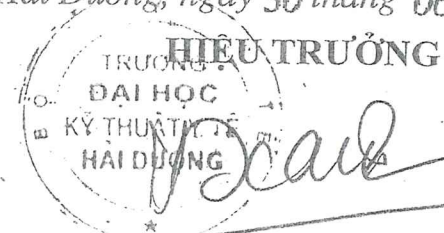 Hải Dương, ngày 30 tháng 06
HIỆU TRƯỞNG
TRƯỜNG
ĐẠI HỌC
KỸ THUẬT Y TẾ
HẢI DƯƠNG
BỘ Y TẾ